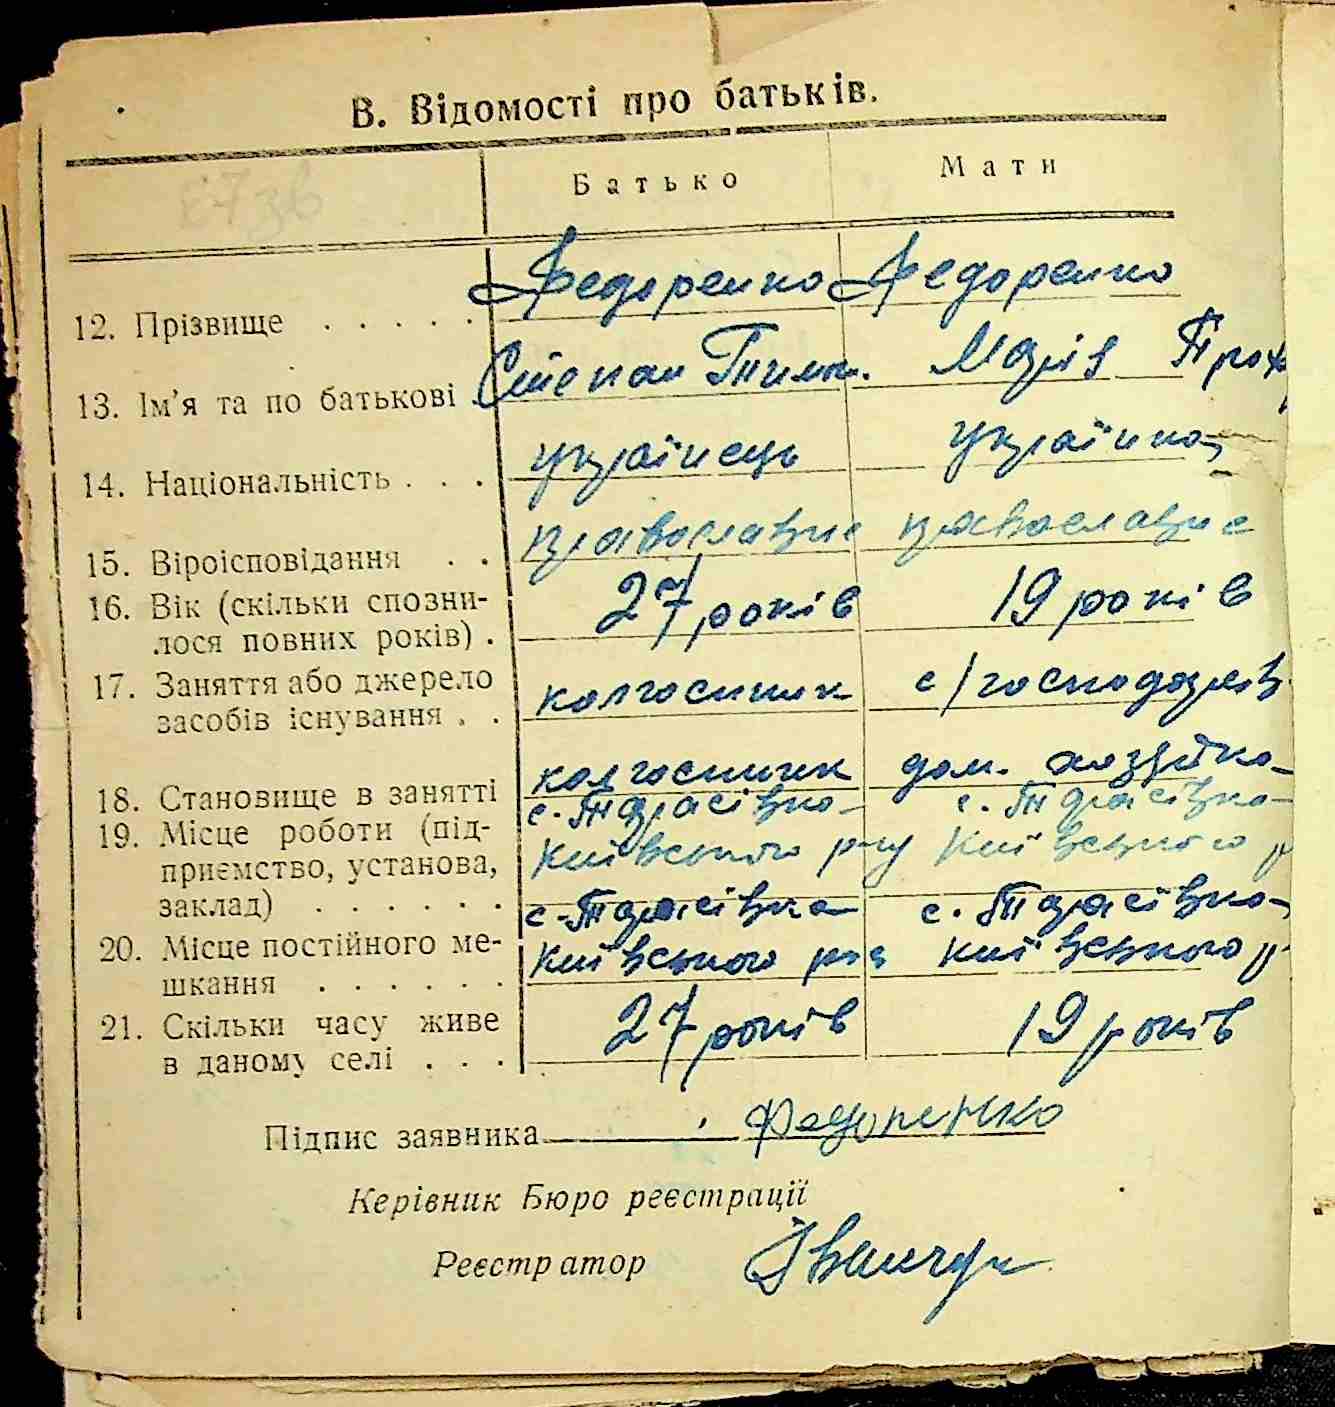 В. Відомості про батьків.
Батько Мати
12. Прізвище . . . . . Федоренко Федоренко
13. Ім'я та по батькові . Степан Тим. Марія Прох
14. Національність . . . українець українка
15. Віроісповідання . . православне православне
16. Вік (скільки сповни-
лося повних років) . 27 років 19 років
17. Заняття або джерело
засобів існування . . колгоспник с/господарів
18. Становище в занятті колгоспник дом. хозяйка
19. Місце роботи (під- с. Тарасівка с. Тарасівка
приємство, установа, Київського р-ну Київського р
заклад) . . . . . .
20. Місце постійного ме- с. Тарасівка с. Тарасівка
шкання . . . . . . Київського р-на Київського р
21. Скільки часу живе
в даному селі . . . 27 років 19 років
Підпис заявника Федоренко
Керівник Бюро реєстрації
Реєстратор